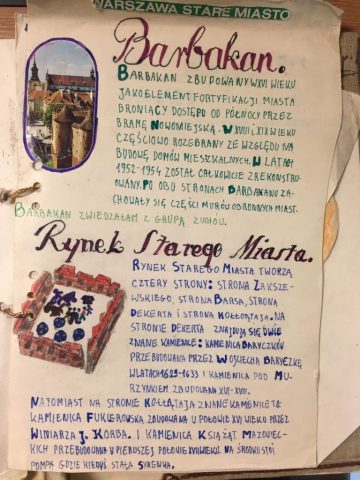 WARSZAWA STARE MIASTO
Barbakan.
BARBAKAN ZBUDOWANY W XVI WIEKU
JAKO ELEMENT FORTYFIKACJI MIASTA
BRONIĄCY DOSTĘPO OD PÓŁNOCY PRZEZ
BRAMĘ NOWOMIEJSKĄ. W XVIII I XIX WIEKU
CZĘŚCIOWO ROZEBRANY ZE WZGLĘDU NA
BUDOWĘ DOMÓW MIESZKALNYCH. W LATACH
1952-1954 ZOSTAŁ CAŁKOWICIE ZREKONSTRU-
OWANY. PO OBU STRONACH BARBAKANU ZA-
CHOWAŁY SIĘ CZĘŚCI MURÓW OBRONNYCH MIAST.
BARBAKAN ZWIEDZAŁAM Z GRUPĄ ZUCHOU.
Rynek Starego Miasta.
RYNEK STAREGO MIASTA TWORZĄ
CZTERY STRONY: STRONA ZAKRZE-
WSKIEGO, STRONA BARSA, STRONA
DEKERTA I STRONA KOŁŁĄTAJA. NA
STRONIE DEKERTA ZNAJDUJĄ SIĘ DWIE
ZNANE KAMIENICE: KAMIENICA BARYCZKÓW
PRZEBUDOWANA PRZEZ WOJCIECHA BARYCZKĘ
W LATACH 1629-1633 I KAMIENICA POD MU-
RZYNKIEM ZBUDOWANA XVI-XVII.
NATOMIAST NA STRONIE KOŁŁĄTAJA ZNANE KAMIENICE TA
KAMIENICA FUKIEROWSKA ZBUDOWANA W POŁOWIE XVI WIEKU PRZEZ
WINIARZA J. KORBA. I KAMIENICA KSIĄŻĄT MAZOWIEC-
KICH PRZEBUDOWANA W PIERWSZEJ POŁOWIE XVII WIEKU. NA ŚRODKU STOI
POMPA GDZIE KIEDYŚ STAŁA SYRENKA.